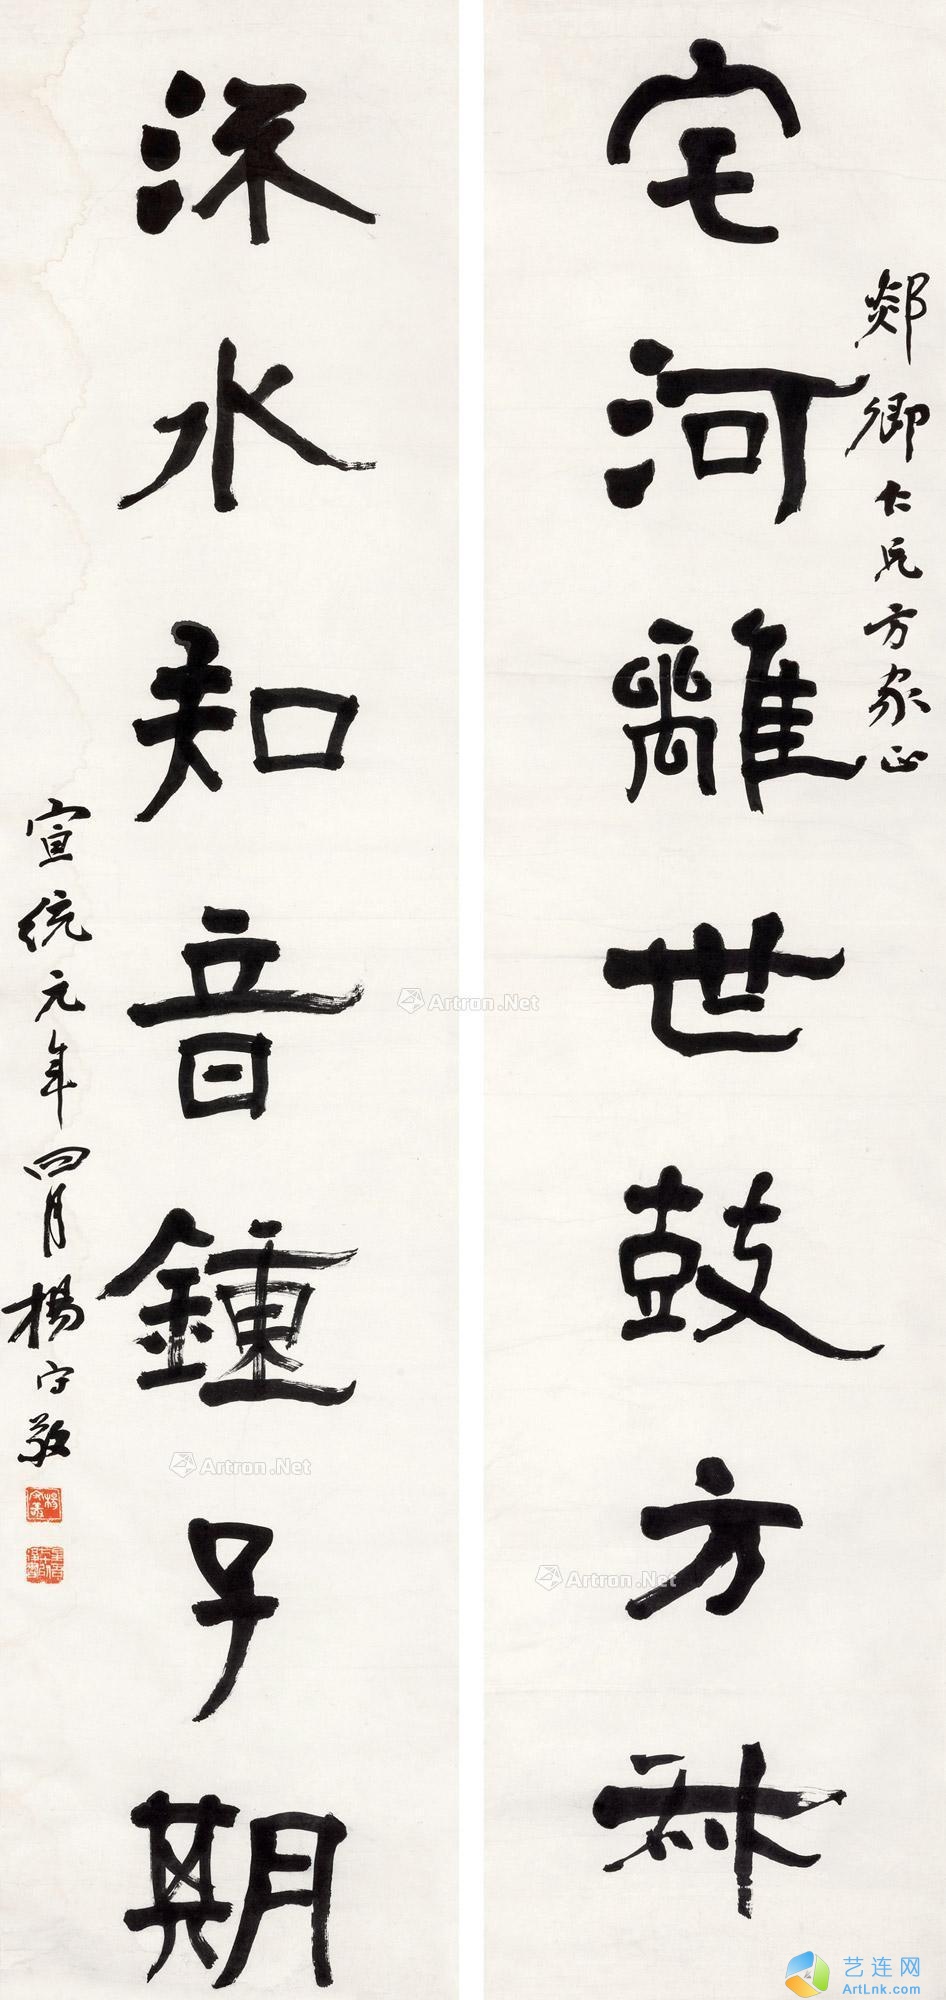 郯卿仁兄方家正
宅河離世鼓方叔
水知音鍾子期
宣統元年四月楊守敬
Artron.Net
Artron.Net
Artron.Net
艺连网
ArtLnk.com